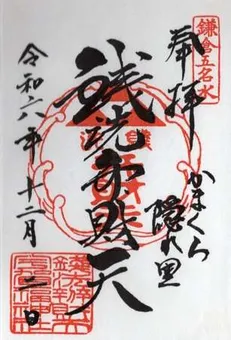 鎌倉五名水
奉拝
かまくら
隠れ里
銭洗弁財天
令和六年十二月二日